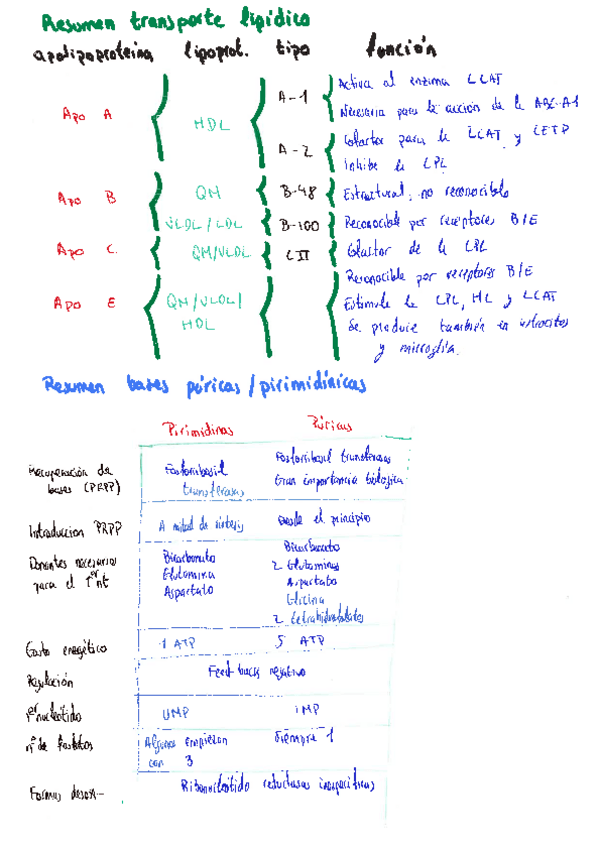 Resumen transporte lipídico
apolipoproteina lipoprot. tipo función
Apo A HDL A-1 Activa al enzima LCAT
Necesaria para la acción de la ABC-A1
A-2 Cofactor para la LCAT y CETP
Inhibe la LPL
Apo B QM B-48 Estructural, no reconocible
VLDL/LDL B-100 Reconocible por receptores B/E
Apo C QM/VLDL CII Cofactor de la LPL
Apo E QM/VLDL/HDL Reconocible por receptores B/E
Estimula la LPL, HL y LCAT
Se produce también en astrocitos
y microglia.
Resumen bases púricas/pirimidínicas
Pirimidinas Púricas
Recuperación de bases (PRPP) Fosforribosil transferasas Fosforribosil transferasas
Gran importancia biológica
Introduccion PRPP A mitad de síntesis Desde el principio
Donantes necesarios para el 1er nt Bicarbonato Bicarbonato
Glutamina 2 Glutaminas
Aspartato Aspartato
Glicina
2 tetrahidrofolatos
Gasto energético 1 ATP 5 ATP
Regulación Feed-back negativo
1er nucleótido UMP IMP
nº de fosfatos Algunos empiezan con 3 Siempre 1
Formas desoxi- Ribonucleótido reductasas inespecíficas